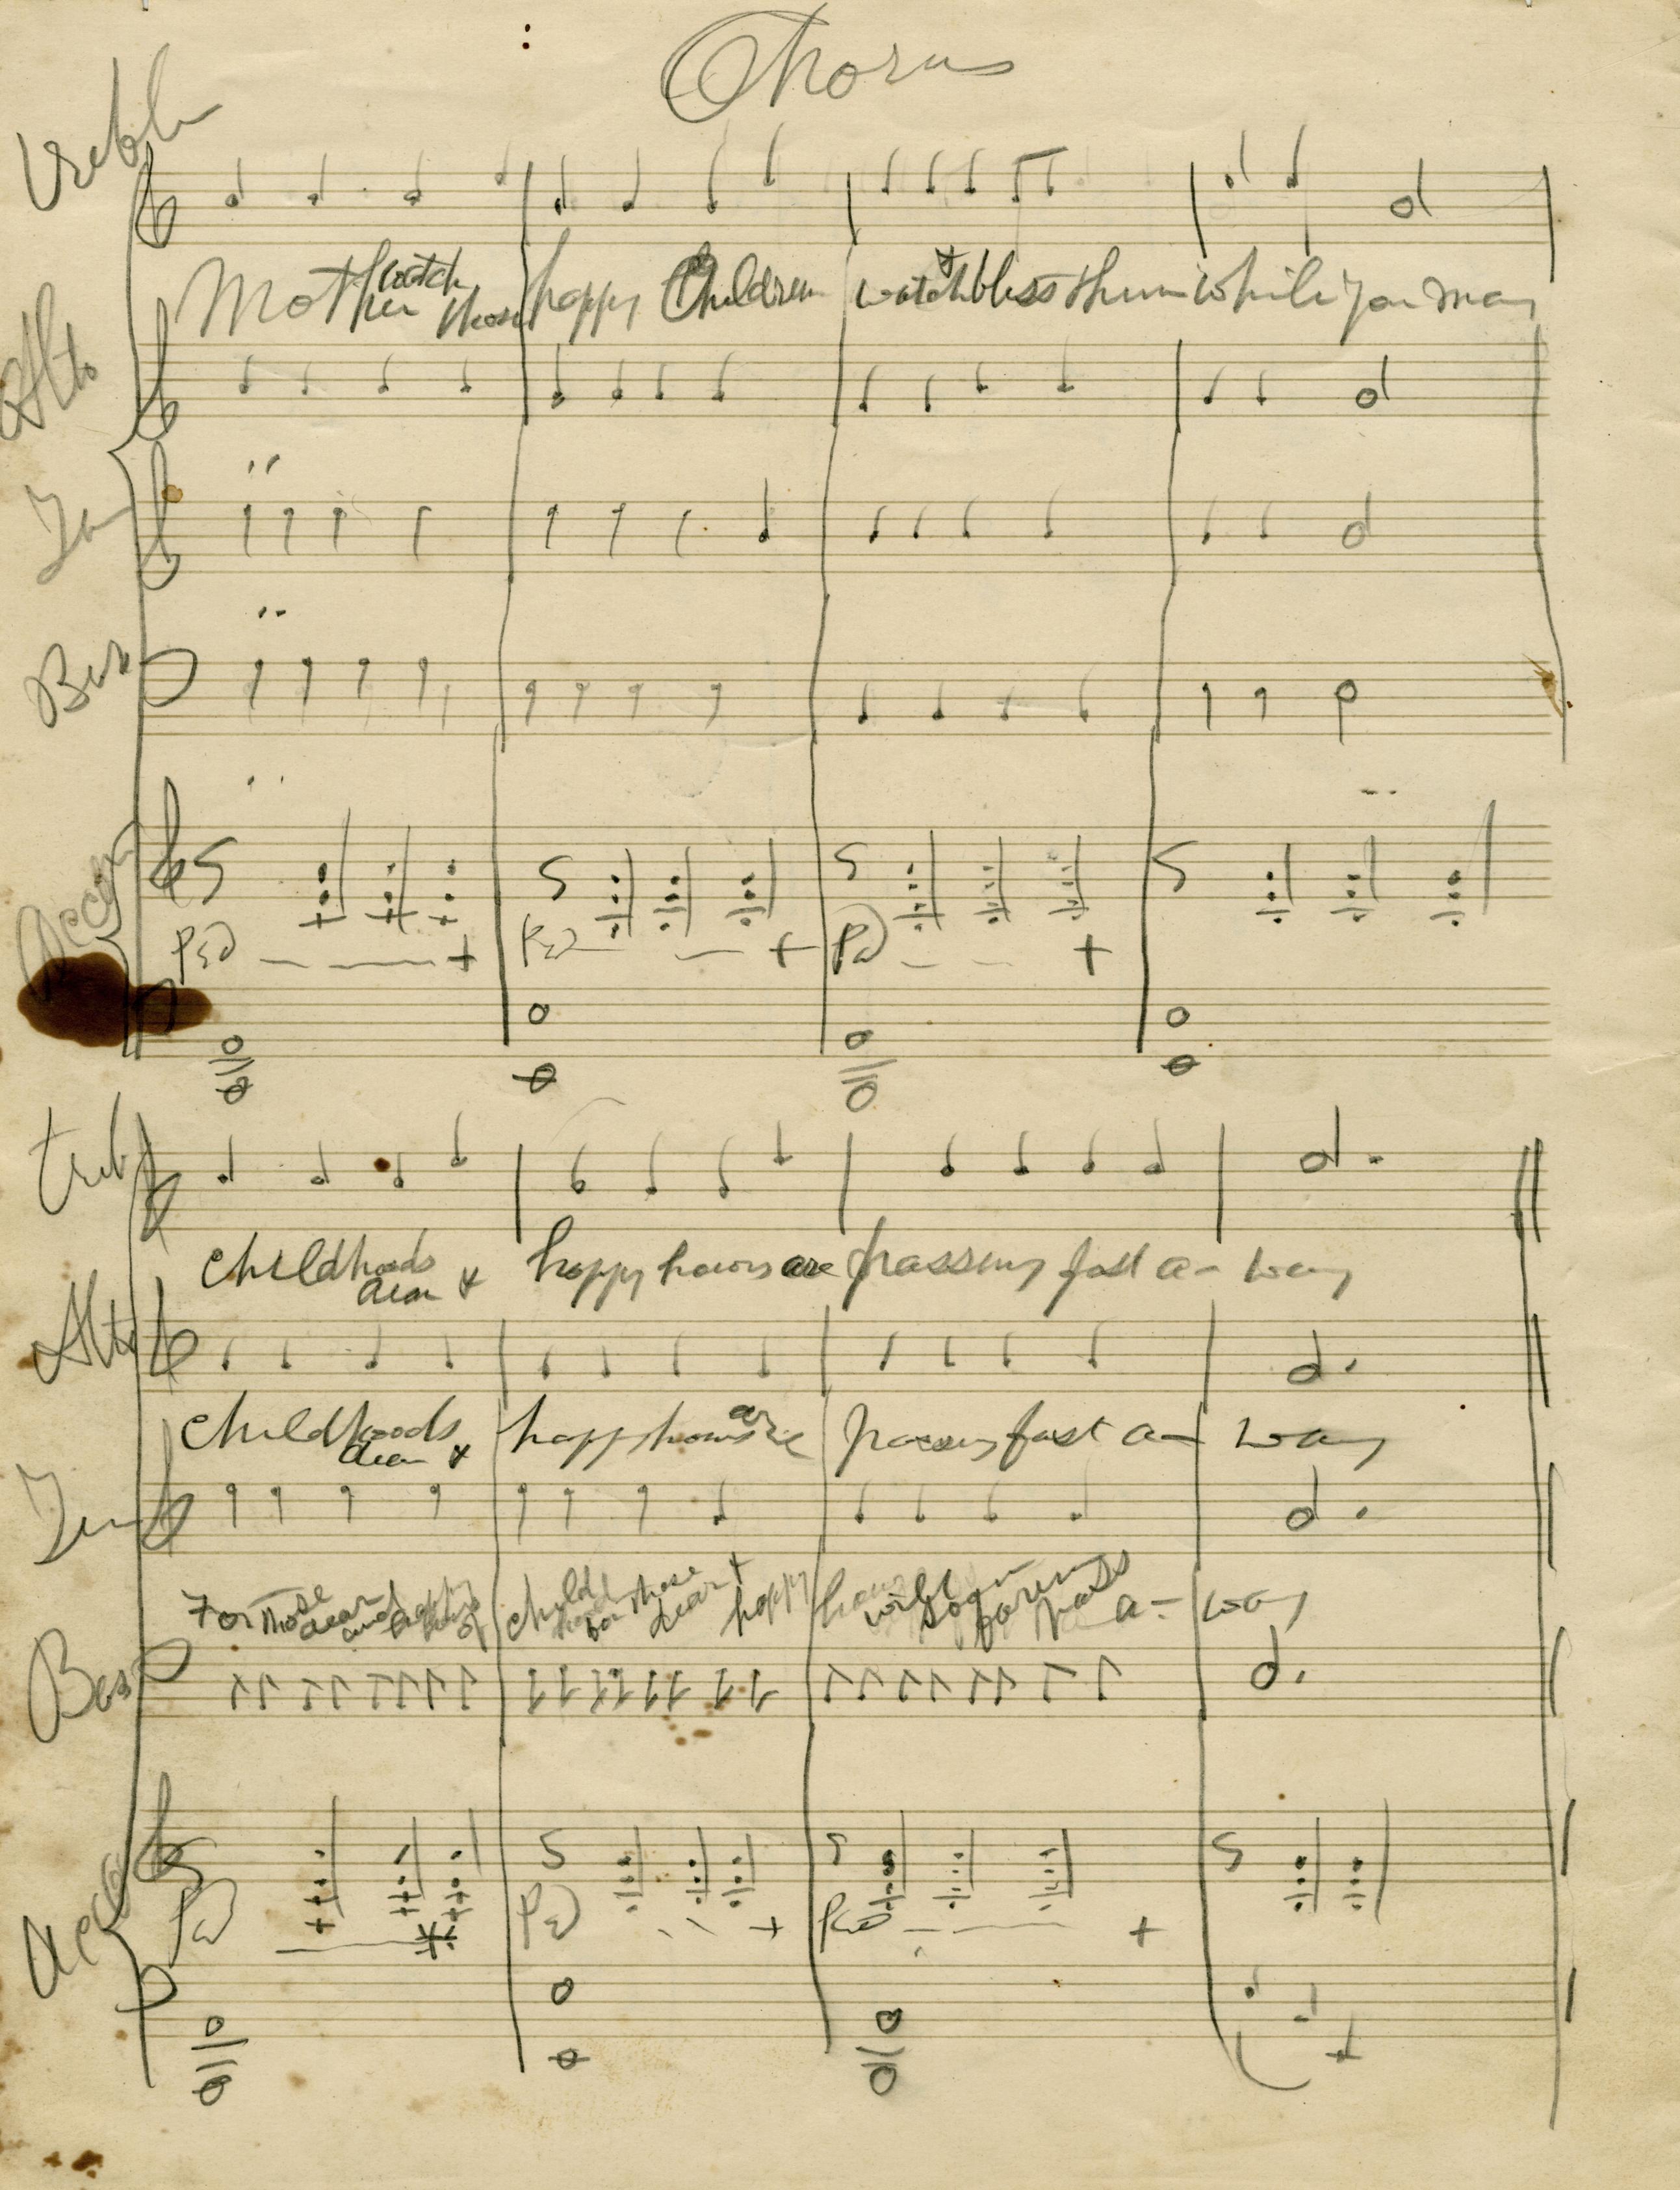 Chorus
Treble
Mother watch those happy Children watch & bless them while you may
Alto
Ten
Bass
Accom
Ped +
Ped +
Ped +
Treb
Childhoods dear & happy hours are passing fast a- way
Alto
Childhoods dear & happy hours are passing fast a- way
Ten
For those dear and happy of Child hood those dear & happy hours will soon pass a- way
Bass
Acco
Ped
Ped +
Ped +